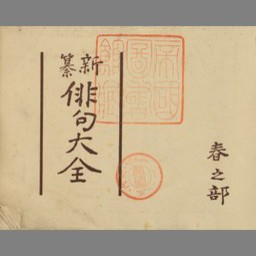 新纂
俳句大全
春之部